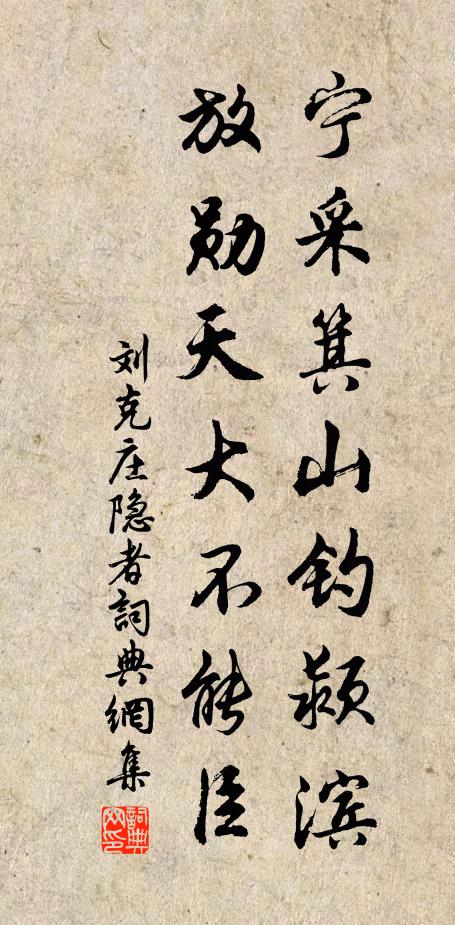 宁采箕山钓颍滨
放勋天大不能臣
刘克庄隐者詞典網集
詞典网印